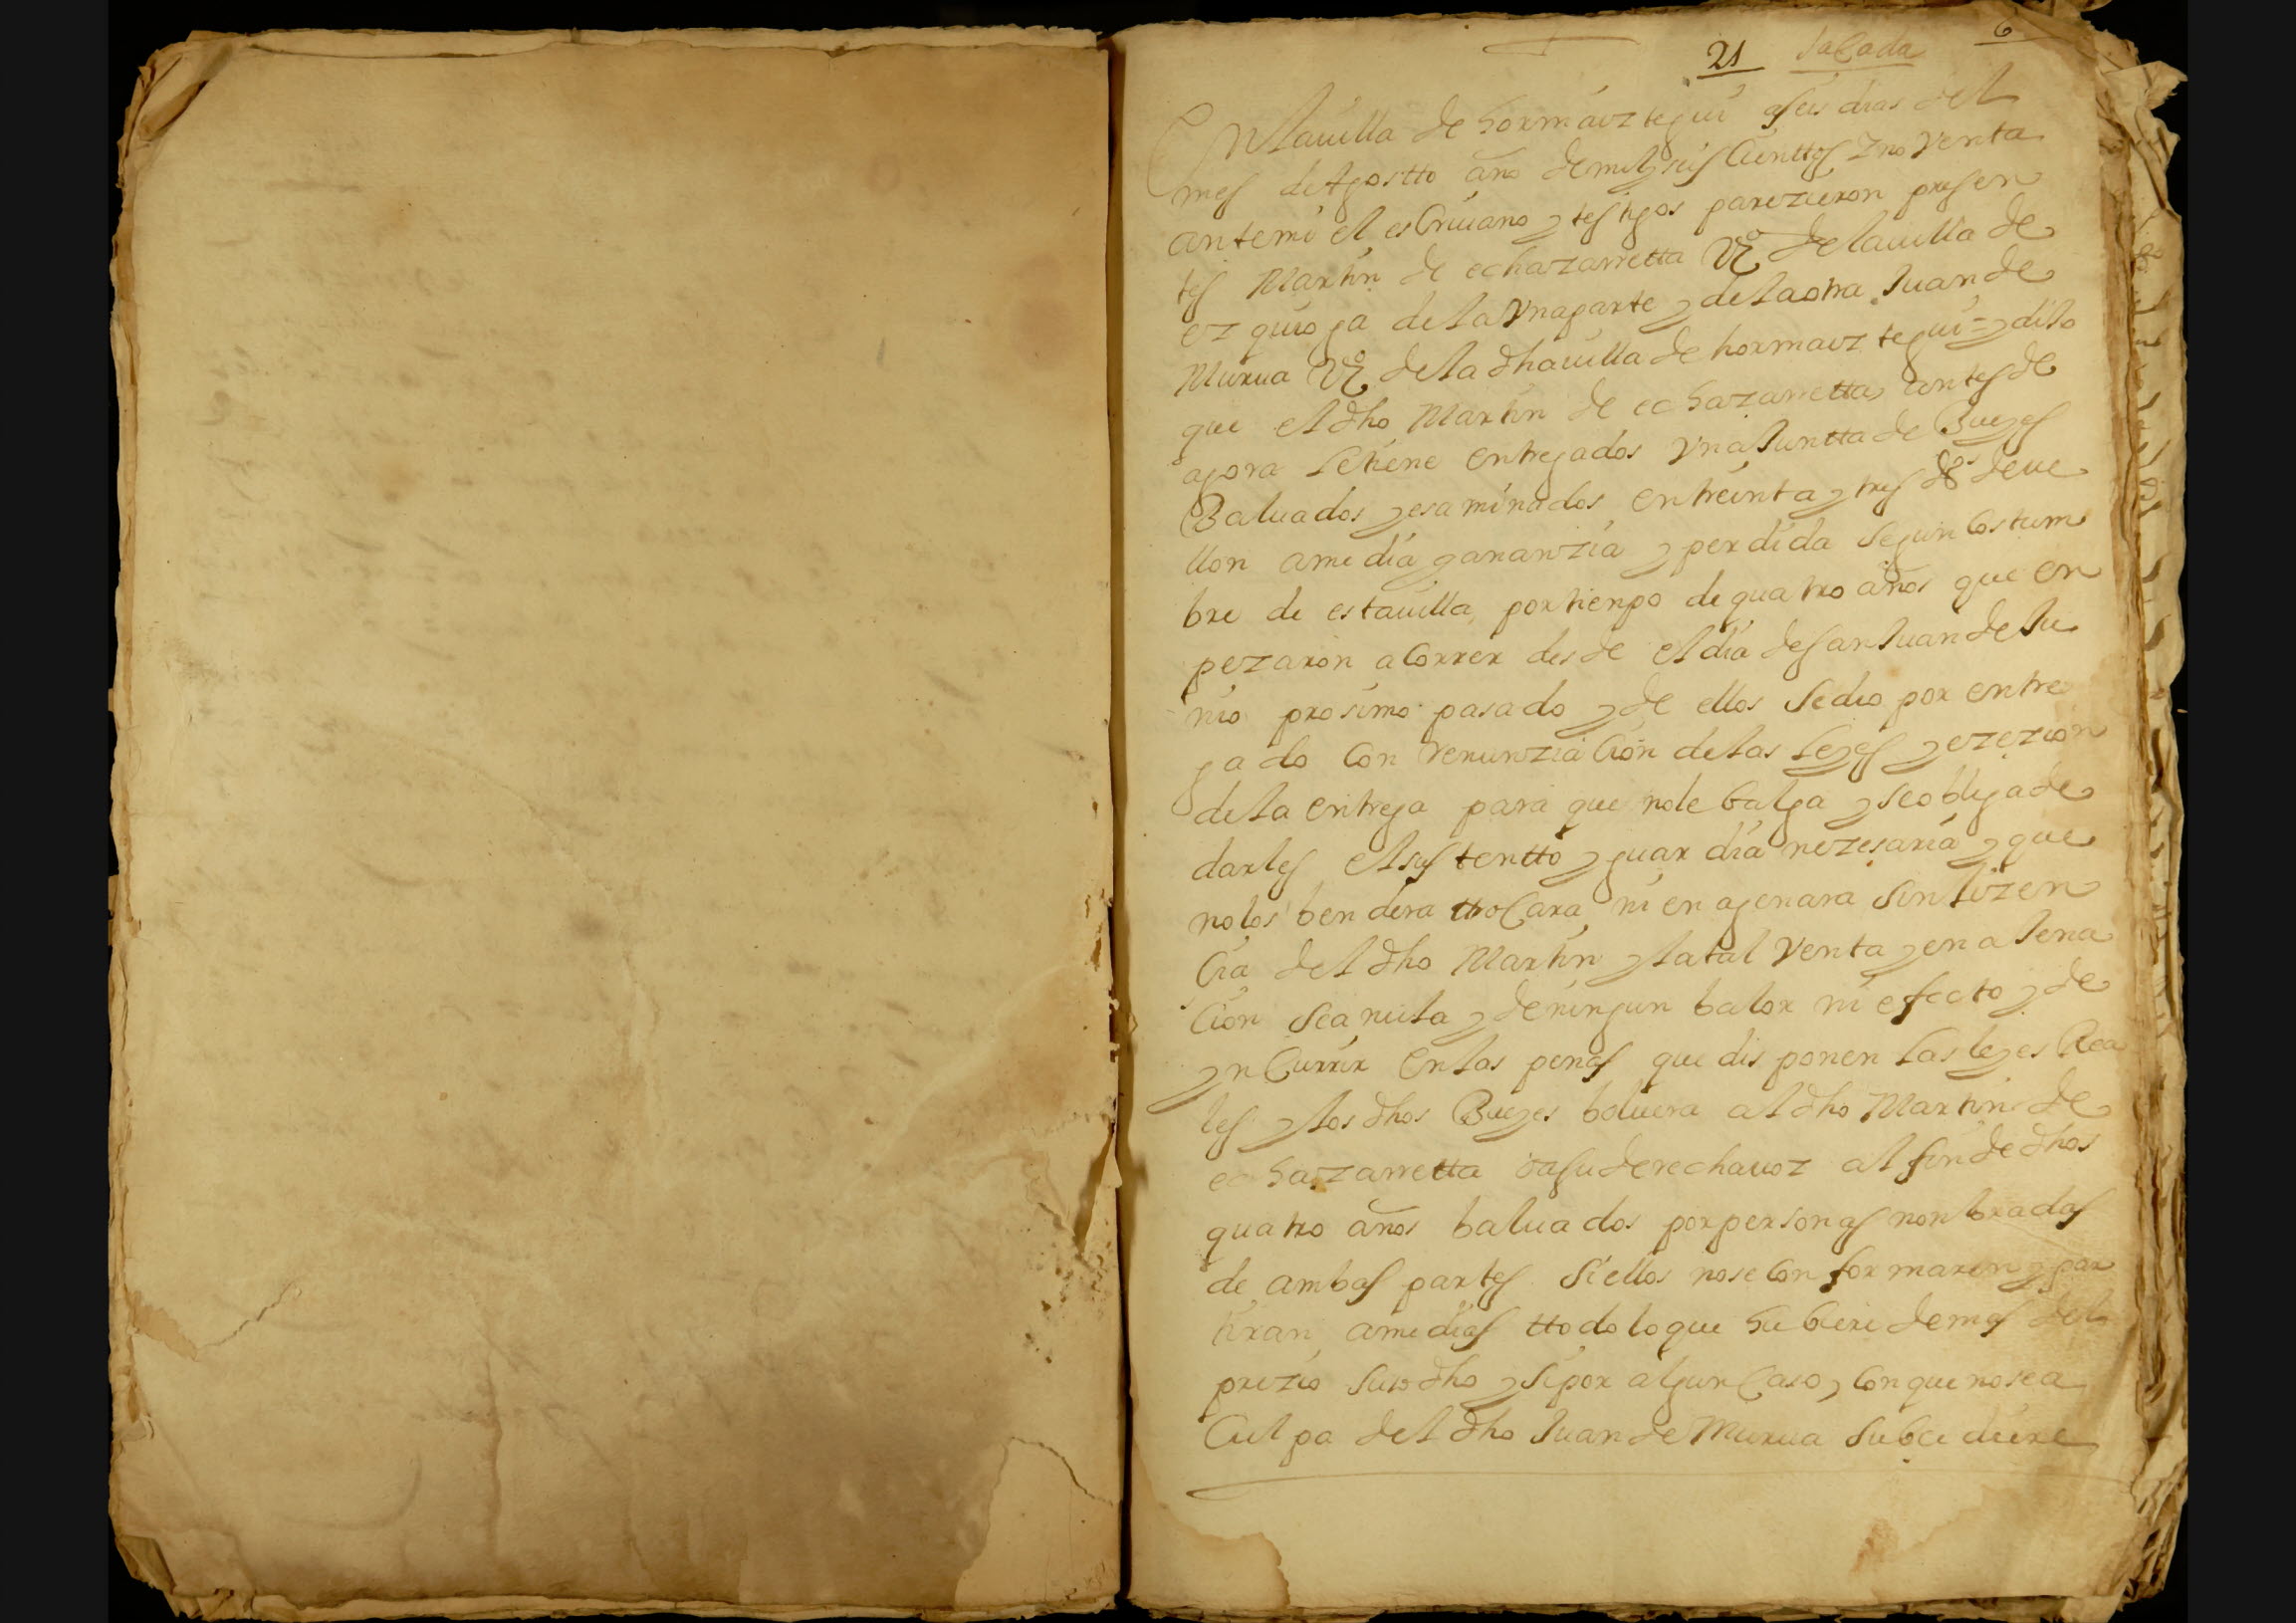 21 sacada 6
En la uilla de hormaiztegui a seis dias del
mes de Agostto año de mil y seis Cienttos y nobenta
ante mi el escriuano y testigos parezieron presen
tes Martin de echazarretta Vº de la uilla de
ezquioga de la Vna parte y de la otra Juan de
Murua Vº de la dha uilla de hormaiztegui = y dijo
que el dho Martin de echazarretta antes de
agora le tiene entregados Vna Juntta de Bueyes
Baluados y esaminados en treinta y tres ds de ve
llon a media gananzia y perdida segun Costum
bre de esta uilla por tienpo de quatro años que en
pezaron a Correr desde el dia de san Juan de Ju
nio prosimo pasado y de ellos se dio por entre
gado Con renunziaCion de las leyes y ezezion
de la entrega para que no le balga y se obliga de
darles el sustentto y guardia nezesaria y que
no los bendera ttroCara ni enagenara sin lizen
Cia del dho Martin y la tal Venta y enajena
Cion sea nula y de ningun balor ni efecto y de
ynCurrir en las penas que disponen las leyes Rea
les y los dhos Bueyes boluera al dho Martin de
echazarretta o a su derecha uoz al fin de dhos
quatro años baluados por personas nonbradas
de ambas partes si ellos no se Conformaren y par
tiran a medias ttodo lo que hubiere de mas del
prezio susodho y si por algun Caso, Con que no sea
Culpa del dho Juan de Murua subcediere